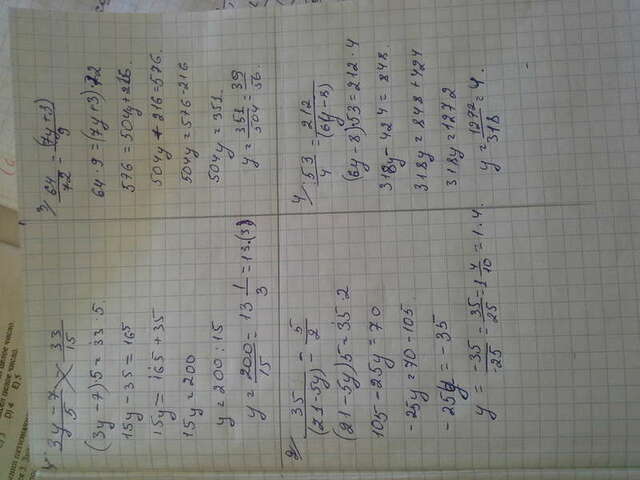 ел целое число.
D) 4 E) 5
1) (3y-7)/5 = 33/15
(3y-7)·5=33·5.
15y-35=165
15y=165+35
15y=200
y=200:15
y=200/15=13 1/3=13.(3)
2) 35/(21-5y)=5/2
(21-5y)5=35·2
105-25y=70
-25y=70-105
-25y=-35
y=-35/-25=35/25=1 4/10=1.4.
3) 64/72=(7y+3)/9
64·9=(7y+3)72
576=504y+216.
504y+216=576.
504y=576-216
504y=351.
y=351/504=39/56.
4) 53/4=212/(6y-8)
(6y-8)·53=212·4
318y-424=848.
318y=848+424
318y=1272
y=1272/318=4.